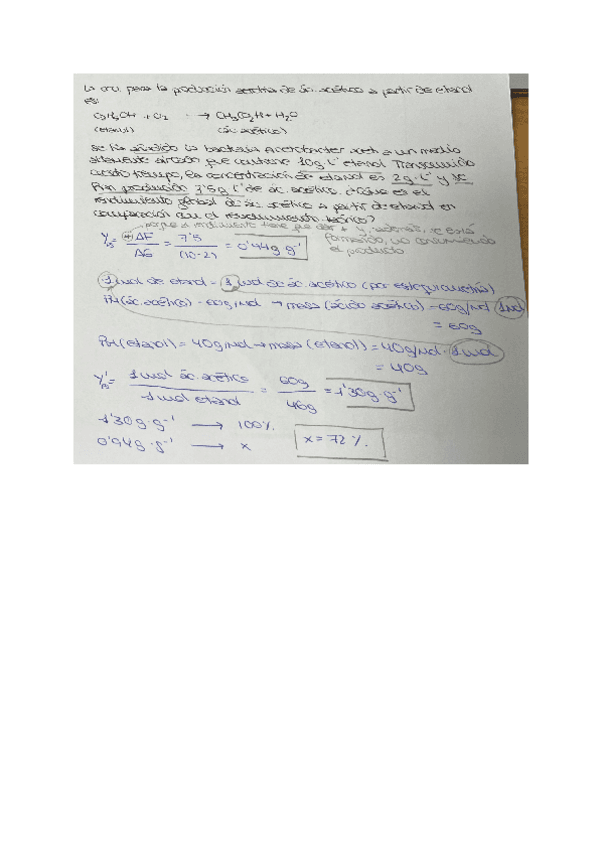 La ecu. para la producción aerobia de ác. acético a partir de etanol
es:
C2H5OH + O2 → CH3CO2H + H2O
(etanol) (ác. acético)
Se ha añadido la bacteria Acetobacter aceti a un medio
aireado que contiene 10g·L⁻¹ etanol. Transcurrido
cierto tiempo, la concentración de etanol es 2g·L⁻¹ y se
han producido 7'5g·L⁻¹ de ác. acético. ¿Cuál es el
rendimiento global de ác. acético a partir de etanol en
comparación con el rendimiento teórico?
porque el rendimiento tiene que dar + y, además, se está
formando, no consumiendo
el producto
Yps = + ΔP / ΔS = 7'5 / (10-2) = 0'94g g⁻¹
1 mol de etanol - 1 mol de ác. acético (por estequiometría)
PM (ác. acético) = 60g/mol → masa (ácido acético) = 60g/mol · 1 mol
= 60g
PM (etanol) = 40g/mol → masa (etanol) = 40g/mol · 1 mol
= 40g
Y'ps = 1 mol ác. acético / 1 mol etanol = 60g / 46g = 1'30g g⁻¹
1'30g g⁻¹ → 100%
0'94g·g⁻¹ → x x = 72%.